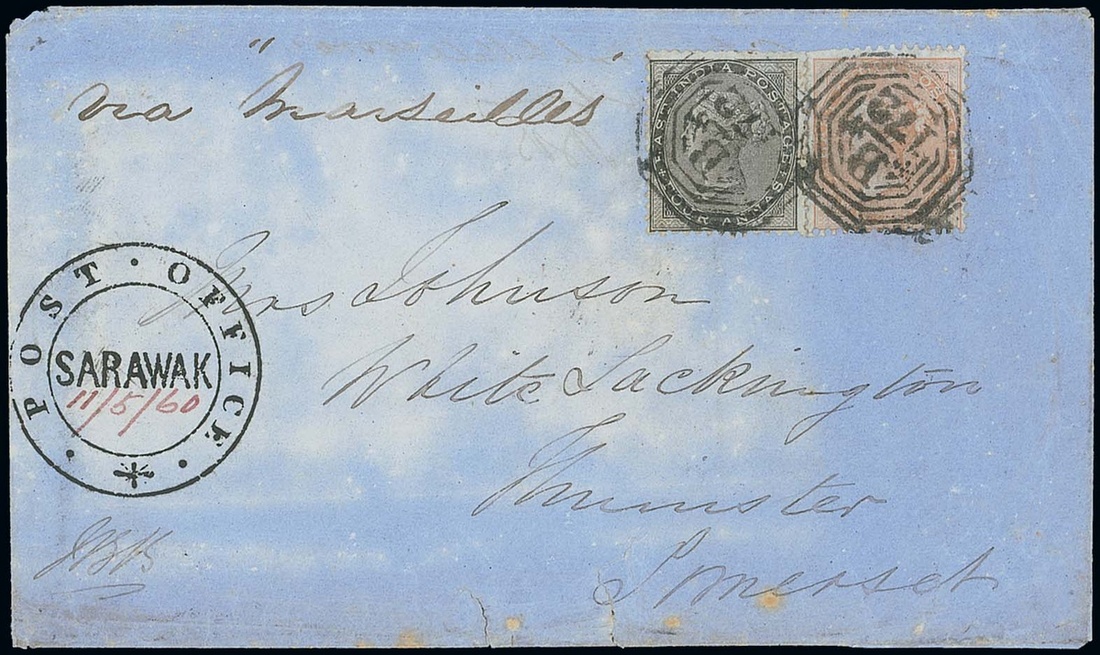 "via Marseilles"
EAST INDIA POSTAGE
FOUR ANNAS
B
172
B
172
Mrs Johnson
White Lackington
Ilminster
Somerset
POST OFFICE
SARAWAK
11/5/60